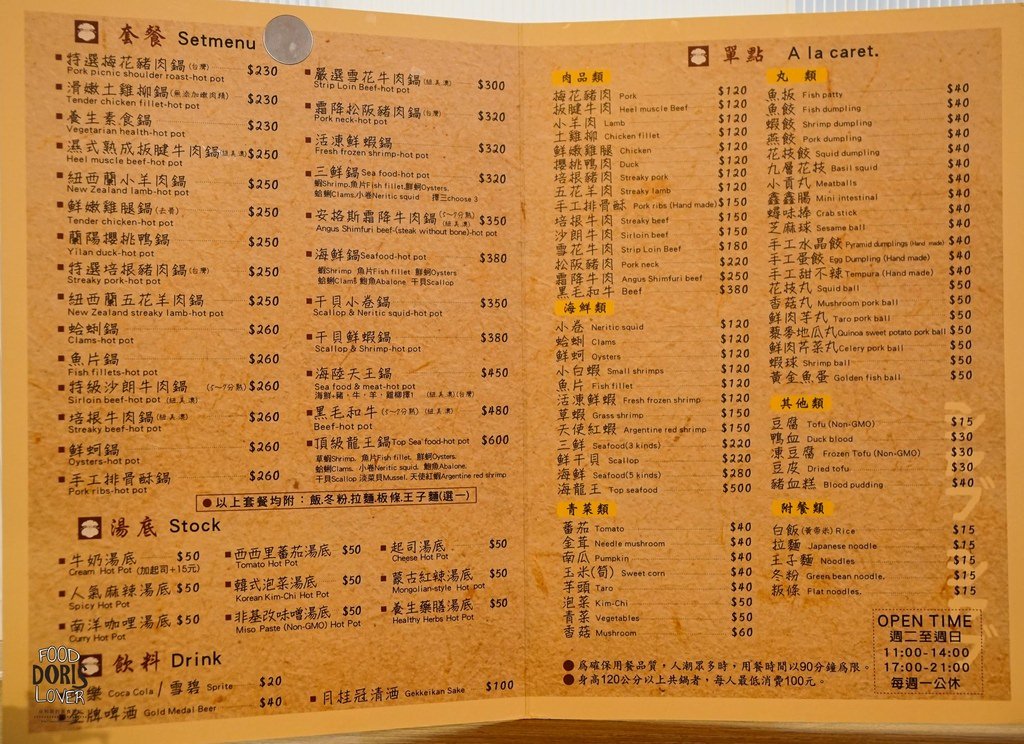 套餐 Setmenu
特選梅花豬肉鍋(台灣) $230
Pork picnic shoulder roast-hot pot
滑嫩土雞柳鍋(無添加嫩肉精) $230
Tender chicken fillet-hot pot
養生素食鍋 $230
Vegetarian health-hot pot
濕式熟成扳腱牛肉鍋(紐.美.澳) $250
Heel muscle beef-hot pot
紐西蘭小羊肉鍋 $250
New Zealand lamb-hot pot
鮮嫩雞腿鍋(去骨) $250
Tender chicken-hot pot
蘭陽櫻挑鴨鍋 $250
Yilan duck-hot pot
特選培根豬肉鍋(台灣) $250
Streaky pork-hot pot
紐西蘭五花羊肉鍋 $250
New Zealand streaky lamb-hot pot
蛤蜊鍋 $260
Clams-hot pot
魚片鍋 $260
Fish fillets-hot pot
特級沙朗牛肉鍋 (5~7分熟) $260
Sirloin beef-hot pot (紐.美.澳)
培根牛肉鍋(紐.美.澳) $260
Streaky beef-hot pot
鮮蚵鍋 $260
Oysters-hot pot
手工排骨酥鍋 $260
Pork ribs-hot pot
嚴選雪花牛肉鍋(紐.美.澳) $300
Strip Loin Beef-hot pot
霜降松阪豬肉鍋(台灣) $320
Pork neck-hot pot
活凍鮮蝦鍋 $320
Fresh frozen shrimp-hot pot
三鮮鍋 Sea food-hot pot $320
蝦Shrimp.魚片Fish fillet.鮮蚵Oysters.
蛤蜊Clams.小卷Neritic squid 擇三choose 3
安格斯霜降牛肉鍋(5~7分熟)(紐.美.澳) $350
Angus Shimfuri beef-(steak without bone)-hot pot
海鮮鍋Seafood-hot pot $380
蝦Shrimp 魚片Fish fillet 鮮蚵Oysters
蛤蜊Clams 鮑魚Abalone 干貝Scallop
干貝小卷鍋 $350
Scallop & Neritic squid-hot pot
干貝鮮蝦鍋 $380
Scallop & Shrimp-hot pot
海陸天王鍋 $450
Sea food & meat-hot pot
海鮮+豬、牛、羊、雞柳擇1 (紐.美.澳)(台灣)
黑毛和牛(5~7分熟)(紐.美.澳) $480
Beef-hot pot
頂級龍王鍋Top Sea food-hot pot $600
草蝦Shrimp. 魚片Fish fillet. 鮮蚵Oysters
蛤蜊Clams. 小卷Neritic squid. 鮑魚Abalone.
干貝Scallop 淡菜貝Mussel. 天使紅蝦Argentine red shrimp
●以上套餐均附：飯.冬粉.拉麵.板條.王子麵(選一)
湯底 Stock
牛奶湯底 $50
Cream Hot Pot (加起司+15元)
人氣麻辣湯底 $50
Spicy Hot Pot
南洋咖哩湯底 $50
Curry Hot Pot
西西里蕃茄湯底 $50
Tomato Hot Pot
韓式泡菜湯底 $50
Korean Kim-Chi Hot Pot
非基改味噌湯底 $50
Miso Paste (Non-GMO) Hot Pot
起司湯底 $50
Cheese Hot Pot
蒙古紅辣湯底 $50
Mongolian-style Hot pot
養生藥膳湯底 $50
Healthy Herbs Hot Pot
飲料 Drink
樂 Coca Cola / 雪碧 Sprite $20
金牌啤酒 Gold Medal Beer $40
月桂冠清酒 Gekkeikan Sake $100
FOOD
DORIS
LOVER
單點 A la caret.
肉品類
梅花豬肉 Pork $120
扳腱牛肉 Heel muscle Beef $120
小羊肉 Lamb $120
土雞柳 Chicken fillet $120
鮮嫩雞腿 Chicken $120
櫻挑鴨肉 Duck $120
培根豬肉 Streaky pork $120
五花羊肉 Streaky lamb $120
手工排骨酥 Pork ribs (Hand made) $150
培根牛肉 Streaky beef $150
沙朗牛肉 Sirloin beef $150
雪花牛肉 Strip Loin Beef $180
松阪豬肉 Pork neck $220
霜降牛肉 Angus Shimfuri beef $250
黑毛和牛 Beef $380
海鮮類
小卷 Neritic squid $120
蛤蜊 Clams $120
鮮蚵 Oysters $120
小白蝦 Small shrimps $120
魚片 Fish fillet $120
活凍鮮蝦 Fresh frozen shrimp $120
草蝦 Grass shrimp $150
天使紅蝦 Argentine red shrimp $150
三鮮 Seafood(3 kinds) $220
鮮干貝 Scallop $220
海鮮 Seafood(5 kinds) $280
海龍王 Top seafood $500
青菜類
蕃茄 Tomato $40
金茸 Needle mushroom $40
南瓜 Pumpkin $40
玉米(筍) Sweet corn $40
芋頭 Taro $40
泡菜 Kim-Chi $50
青菜 Vegetables $50
香菇 Mushroom $60
丸 類
魚扳 Fish patty $40
魚餃 Fish dumpling $40
蝦餃 Shrimp dumpling $40
燕餃 Pork dumpling $40
花枝餃 Squid dumpling $40
九層花枝 Basil squid $40
小貢丸 Meatballs $40
鑫鑫腸 Mini intestinal $40
蟳味棒 Crab stick $40
芝麻球 Sesame ball $40
手工水晶餃 Pyramid dumplings (Hand made) $40
手工蛋餃 Egg Dumpling (Hand made) $40
手工甜不辣 Tempura (Hand made) $40
花枝丸 Squid ball $50
香菇丸 Mushroom pork ball $50
鮮肉芋丸 Taro pork ball $50
藜麥地瓜丸Quinoa sweet potato pork ball $50
鮮肉芹菜丸Celery pork ball $50
蝦球 Shrimp ball $50
黃金魚蛋 Golden fish ball $50
其他類
豆腐 Tofu (Non-GMO) $15
鴨血 Duck blood $30
凍豆腐 Frozen Tofu (Non-GMO) $30
豆皮 Dried tofu $30
豬血糕 Blood pudding $40
附餐類
白飯(黃帝米) Rice $15
拉麵 Japanese noodle $15
王子麵 Noodles $15
冬粉 Green bean noodle. $15
板條 Flat noodles. $15
OPEN TIME
週二至週日
11:00-14:00
17:00-21:00
每週一公休
●為確保用餐品質，人潮眾多時，用餐時間以90分鐘為限。
●身高120公分以上共鍋者，每人最低消費100元。